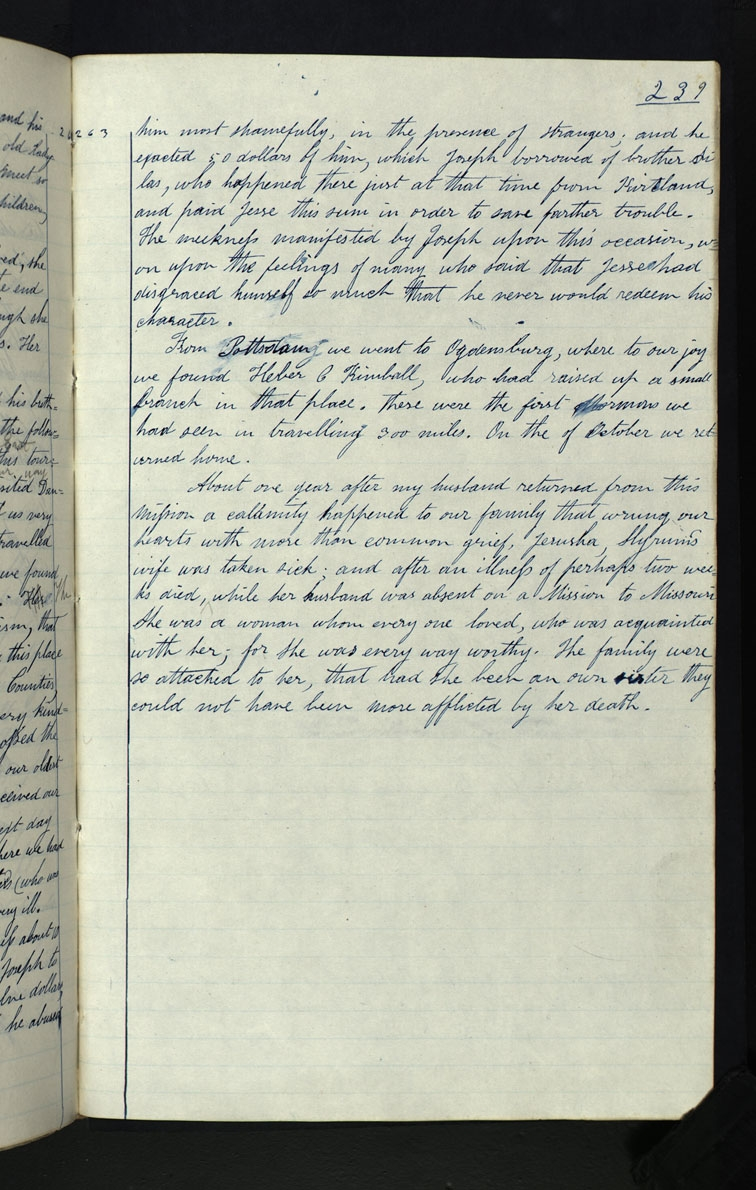 239
him most shamefully, in the presence of strangers; and he
exacted 50 dollars of him, which Joseph borrowed of brother Si
las, who happened there just at that time from Kirtland,
and paid Jesse this sum in order to save farther trouble.
The meekness manifested by Joseph upon this occasion, w=
on upon the feelings of many who said that Jesse had
disgraced himself so much that he never would redeem his
character.
From Pottsdam, we went to Ogdensburg, where to our joy
we found Heber C Kimball, who had raised up a small
branch in that place. There were the first Mormons we
had seen in travelling 300 miles. On the of October we ret-
urned home.
About one year after my husband returned from this
mission a calamity happened to our family that wrung our
hearts with more than common grief. Jerusha, Hyrum's
wife was taken sick; and after an illness of perhaps two wee=
ks died, while her husband was absent on a Mission to Missouri
She was a woman whom every one loved, who was acquainted
with her; for she was every way worthy. The family were
so attached to her, that had she been an own sister they
could not have been more afflicted by her death.
and his
old lady
children,
she
end
she
Her
his broth=
the follow=
this tour
visited Dan=
us very
travelled
we found
that
this place
Counties
very kind=
the
our oldest
received our
day
here we had
(who was
very ill.
about 10
Joseph to
dollars,
he abused